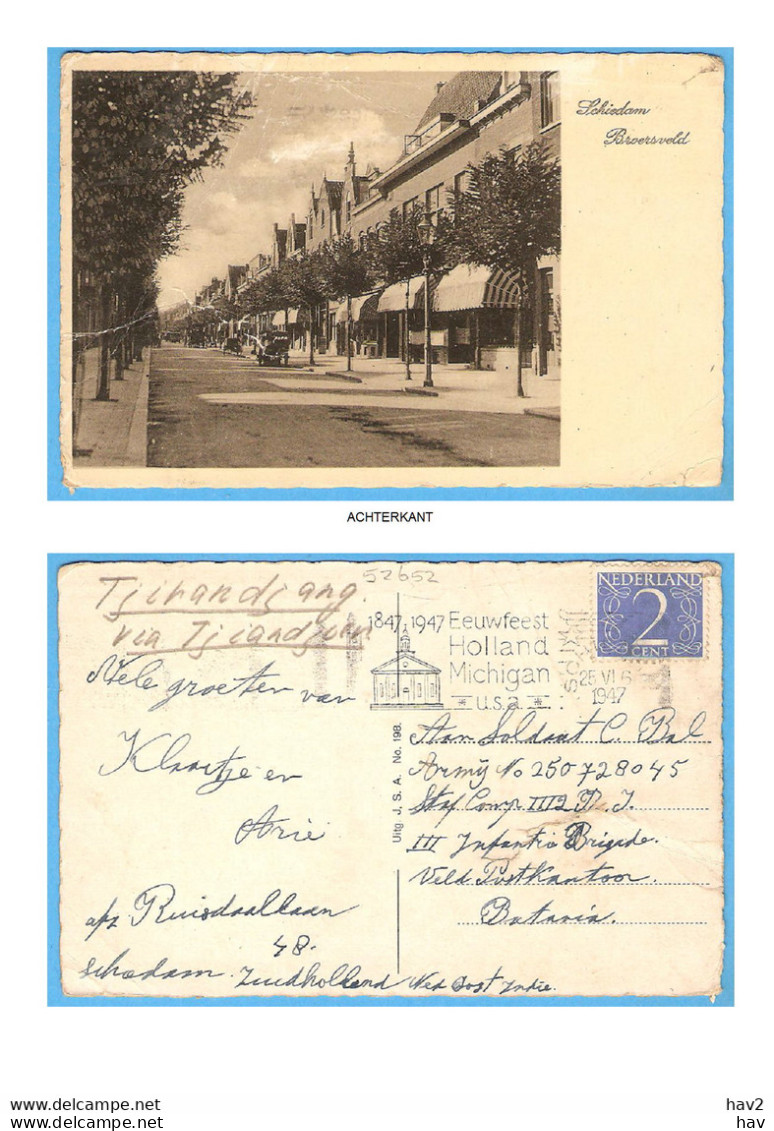 Schiedam
Broersveld
ACHTERKANT
52652
Tjihandjang.
via Tjiandjoer
1847-1947 Eeuwfeest
Holland
Michigan
* u.s.a. *
25 VI 6
1947
NEDERLAND
2
CENT
Vele groeten van
Klaartje en
Arie
afz Ruisdaellaan
48.
Schiedam. Zuidholland
Uitg J. S. A. No. 198.
Aan Soldaat C. Bal
Army No 250728045
Staf Comp III 2 R. I.
III Infantie Brigade.
Veld Postkantoor.
Batavia.
Ned Oost Indie.
hav2
Delcampe.net
hav